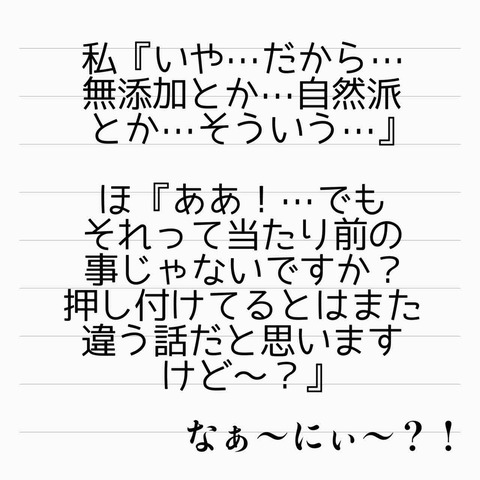 私『いや…だから…
無添加とか…自然派
とか…そういう…』
ほ『ああ！…でも
それって当たり前の
事じゃないですか？
押し付けてるとはまた
違う話だと思います
けど〜？』
なぁ〜にぃ〜？！